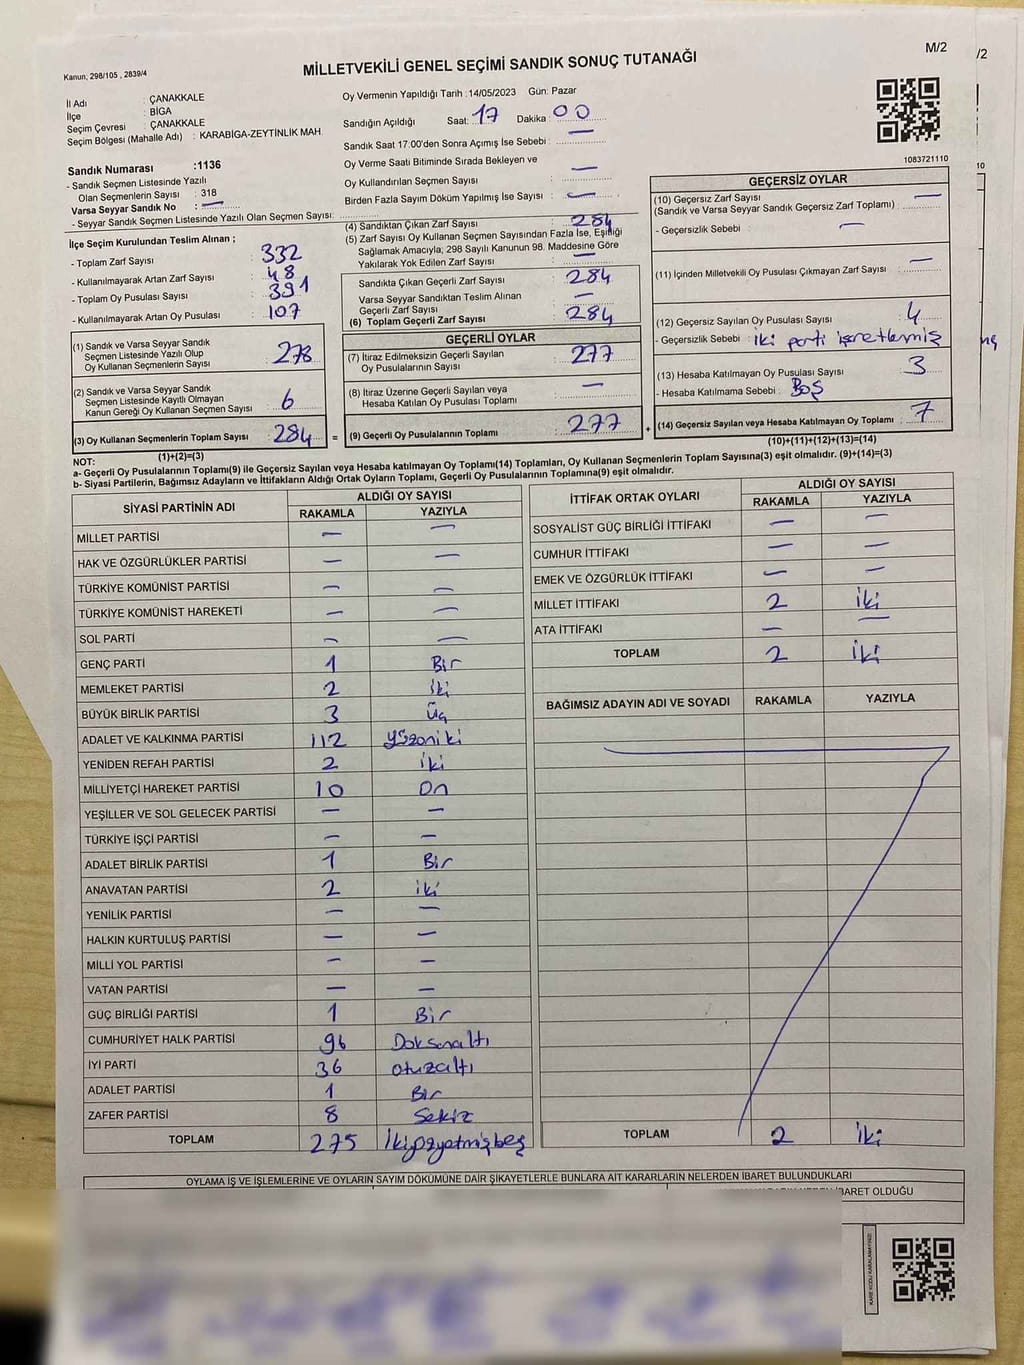 M/2
/2
Kanun, 298/105 , 2839/4
MİLLETVEKİLİ GENEL SEÇİMİ SANDIK SONUÇ TUTANAĞI
İl Adı : ÇANAKKALE
İlçe : BİGA
Seçim Çevresi : ÇANAKKALE
Seçim Bölgesi (Mahalle Adı) : KARABİGA-ZEYTİNLİK MAH
Sandık Numarası :1136
- Sandık Seçmen Listesinde Yazılı
Olan Seçmenlerin Sayısı : 318
Varsa Seyyar Sandık No : —
- Seyyar Sandık Seçmen Listesinde Yazılı Olan Seçmen Sayısı:
Oy Vermenin Yapıldığı Tarih :14/05/2023 Gün: Pazar
Sandığın Açıldığı Saat: 17 Dakika : 00
Sandık Saat 17.00'den Sonra Açımış İse Sebebi : —
Oy Verme Saati Bitiminde Sırada Bekleyen ve
Oy Kullandırılan Seçmen Sayısı : —
Birden Fazla Sayım Döküm Yapılmış İse Sayısı : —
1083721110
10
İlçe Seçim Kurulundan Teslim Alınan ;
- Toplam Zarf Sayısı : 332
- Kullanılmayarak Artan Zarf Sayısı : 48
- Toplam Oy Pusulası Sayısı : 391
- Kullanılmayarak Artan Oy Pusulası : 107
(1) Sandık ve Varsa Seyyar Sandık
Seçmen Listesinde Yazılı Olup
Oy Kullanan Seçmenlerin Sayısı : 278
(2) Sandık ve Varsa Seyyar Sandık
Seçmen Listesinde Kayıtlı Olmayan
Kanun Gereği Oy Kullanan Seçmen Sayısı : 6
(3) Oy Kullanan Seçmenlerin Toplam Sayısı : 284 =
(1)+(2)=(3)
(4) Sandıktan Çıkan Zarf Sayısı : 284
(5) Zarf Sayısı Oy Kullanan Seçmen Sayısından Fazla İse, Eşitliği
Sağlamak Amacıyla; 298 Sayılı Kanunun 98. Maddesine Göre
Yakılarak Yok Edilen Zarf Sayısı : —
Sandıkta Çıkan Geçerli Zarf Sayısı : 284
Varsa Seyyar Sandıktan Teslim Alınan
Geçerli Zarf Sayısı : —
(6) Toplam Geçerli Zarf Sayısı : 284
GEÇERLİ OYLAR
(7) İtiraz Edilmeksizin Geçerli Sayılan
Oy Pusulalarının Sayısı : 277
(8) İtiraz Üzerine Geçerli Sayılan veya
Hesaba Katılan Oy Pusulası Toplamı : —
(9) Geçerli Oy Pusulalarının Toplamı : 277 +
GEÇERSİZ OYLAR
(10) Geçersiz Zarf Sayısı
(Sandık ve Varsa Seyyar Sandık Geçersiz Zarf Toplamı) : —
- Geçersizlik Sebebi : —
(11) İçinden Milletvekili Oy Pusulası Çıkmayan Zarf Sayısı : —
(12) Geçersiz Sayılan Oy Pusulası Sayısı : 4
- Geçersizlik Sebebi : iki parti işretlemiş
(13) Hesaba Katılmayan Oy Pusulası Sayısı : 3
- Hesaba Katılmama Sebebi : Boş
(14) Geçersiz Sayılan veya Hesaba Katılmayan Oy Toplamı : 7
(10)+(11)+(12)+(13)=(14)
NOT:
a- Geçerli Oy Pusulalarının Toplamı(9) ile Geçersiz Sayılan veya Hesaba katılmayan Oy Toplamı(14) Toplamları, Oy Kullanan Seçmenlerin Toplam Sayısına(3) eşit olmalıdır. (9)+(14)=(3)
b- Siyasi Partilerin, Bağımsız Adayların ve İttifakların Aldığı Ortak Oyların Toplamı, Geçerli Oy Pusulalarının Toplamına(9) eşit olmalıdır.
SİYASİ PARTİNİN ADI ALDIĞI OY SAYISI
RAKAMLA YAZIYLA
MİLLET PARTİSİ — —
HAK VE ÖZGÜRLÜKLER PARTİSİ — —
TÜRKİYE KOMÜNİST PARTİSİ — —
TÜRKİYE KOMÜNİST HAREKETİ — —
SOL PARTİ — —
GENÇ PARTİ 1 Bir
MEMLEKET PARTİSİ 2 iki
BÜYÜK BİRLİK PARTİSİ 3 Üç
ADALET VE KALKINMA PARTİSİ 112 yüzoniki
YENİDEN REFAH PARTİSİ 2 iki
MİLLİYETÇİ HAREKET PARTİSİ 10 On
YEŞİLLER VE SOL GELECEK PARTİSİ — —
TÜRKİYE İŞÇİ PARTİSİ — —
ADALET BİRLİK PARTİSİ 1 Bir
ANAVATAN PARTİSİ 2 iki
YENİLİK PARTİSİ — —
HALKIN KURTULUŞ PARTİSİ — —
MİLLİ YOL PARTİSİ — —
VATAN PARTİSİ — —
GÜÇ BİRLİĞİ PARTİSİ 1 Bir
CUMHURİYET HALK PARTİSİ 96 Doksanaltı
İYİ PARTİ 36 otuzaltı
ADALET PARTİSİ 1 Bir
ZAFER PARTİSİ 8 Sekiz
TOPLAM 275 ikiyüzyetmişbeş
İTTİFAK ORTAK OYLARI ALDIĞI OY SAYISI
RAKAMLA YAZIYLA
SOSYALİST GÜÇ BİRLİĞİ İTTİFAKI — —
CUMHUR İTTİFAKI — —
EMEK VE ÖZGÜRLÜK İTTİFAKI — —
MİLLET İTTİFAKI 2 iki
ATA İTTİFAKI — —
TOPLAM 2 iki
BAĞIMSIZ ADAYIN ADI VE SOYADI RAKAMLA YAZIYLA
TOPLAM 2 iki
OYLAMA İŞ VE İŞLEMLERİNE VE OYLARIN SAYIM DÖKÜMÜNE DAİR ŞİKAYETLERLE BUNLARA AİT KARARLARIN NELERDEN İBARET BULUNDUKLARI
İBARET OLDUĞU
KARE KODU KARALAMAYINIZ!